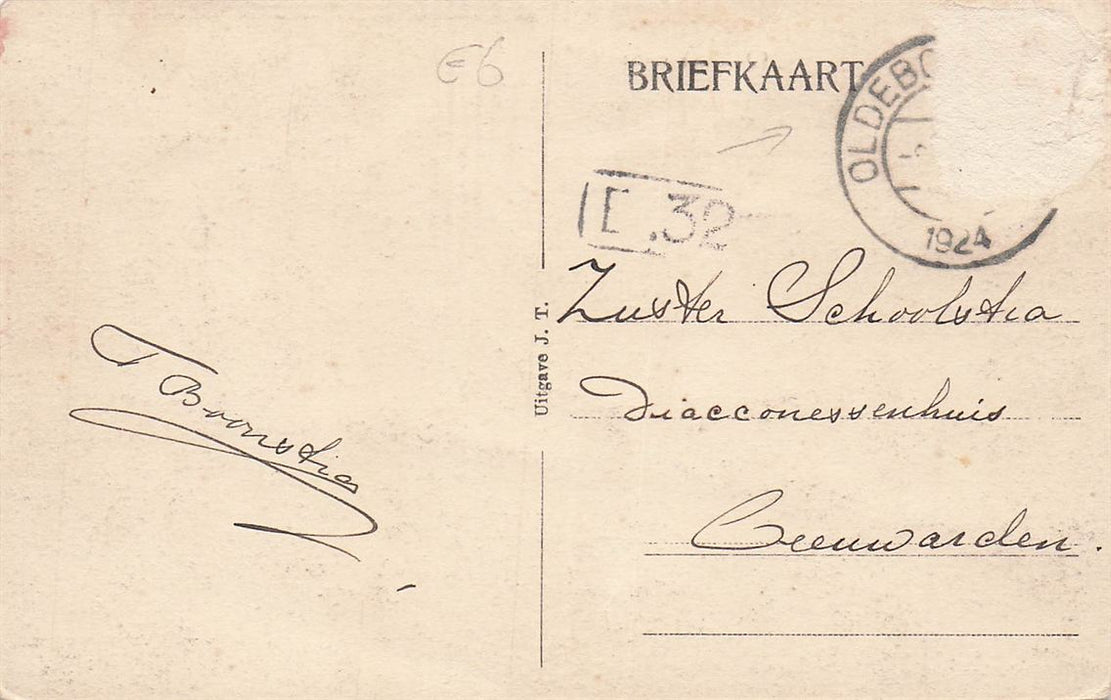 E6
BRIEFKAART
OLDEBO
1924
E.32
Zuster Schoolstra
Diacconessenhuis
Leeuwarden.
Uitgave J. T.
T Boonstra